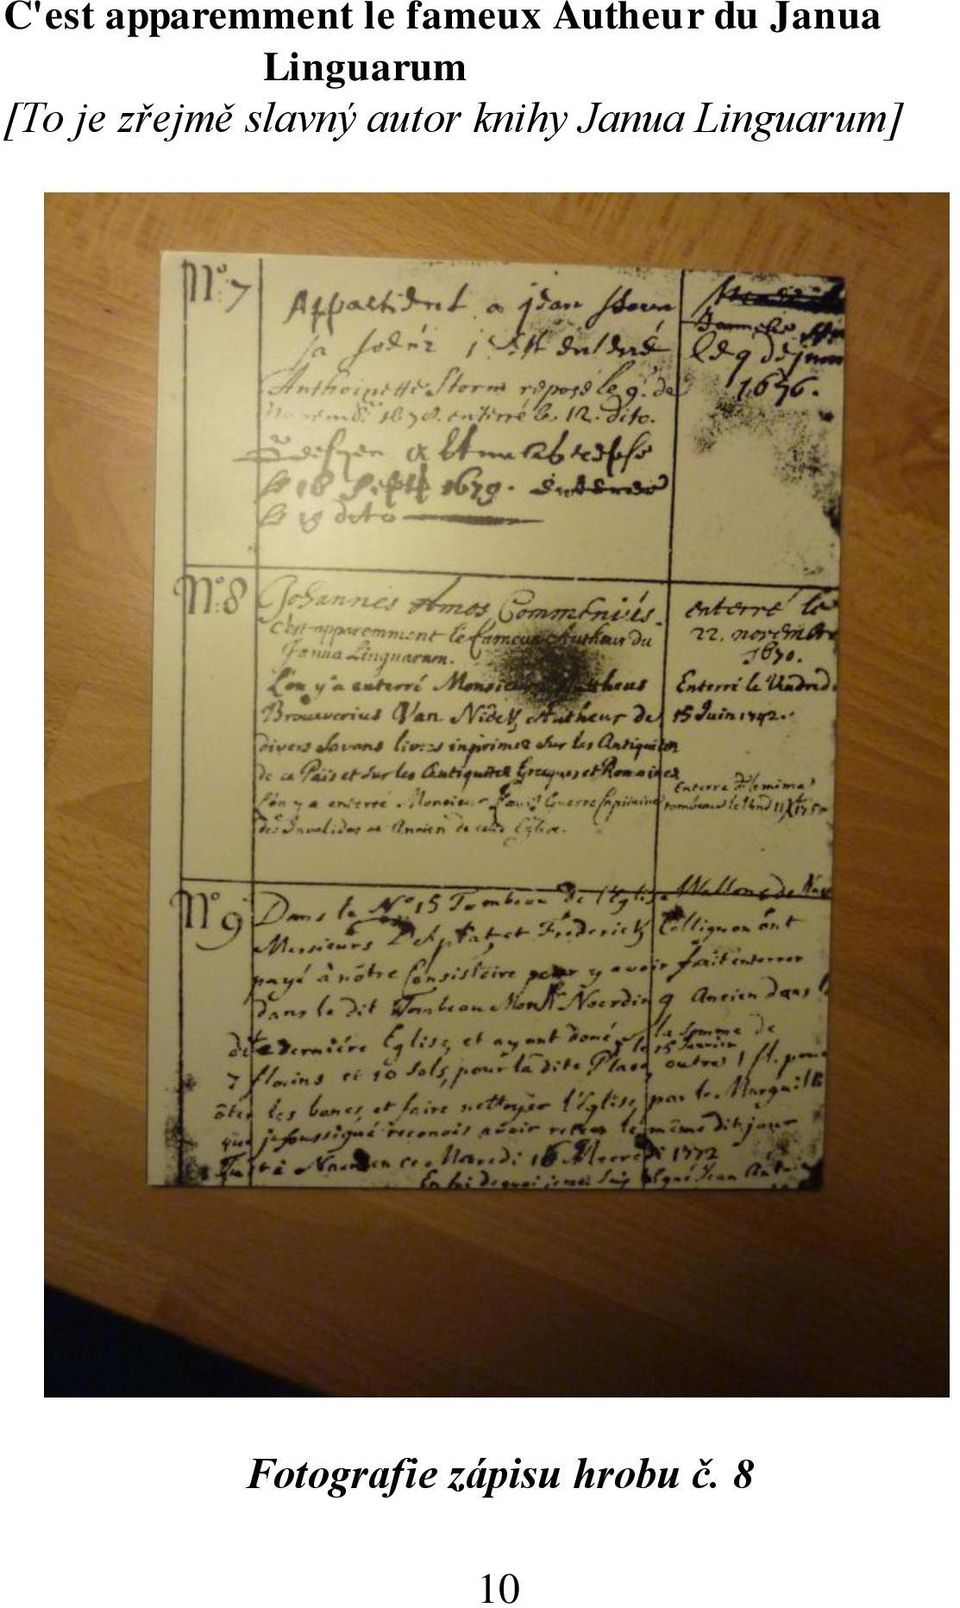 C'est apparemment le fameux Autheur du Janua
Linguarum
[To je zřejmě slavný autor knihy Janua Linguarum]
N.º 7
Appartient a jean
le 9 de juin
1676.
Anthoinette Storm reposé le 9. de
1678. enterré le. 12. dito.
le 18 Sept 1679. enterré
le 19 dito
N.º 8
Johannes Amos Commenius.
enterré le
c'est apparemment le fameux Autheur du
22. novembre
Janua Linguarum.
1670.
L'on y a enterré Monsieur Mattheus
Enterré le Vendredi
Brouwerius Van Nidek, Autheur de
15 Juin 1742.
divers Savans livres imprimez sur les Antiquitez
de ce Païs et sur les Antiquitez Grecques et Romaines
l'on y a enterré Monsieur Guerre Capitaine
des Invalides et Ancien de cette Eglise.
Nº 9
Dans le Nº 15 Tombeau de l'Eglise Wallonne de
Messieurs et Frederick Collignon ont
payé à nôtre Consistoire pour y avoir fait enterrer
dans le dit Tombeau Mons. Noordin Ancien dans
dernière Eglise, et ayant doné la somme de
7 florins et 10 sols, pour la dite Place, outre 1 fl. pour
ôter les bancs, et faire nettoyer l'Eglise, par le
que je soussigné reconois avoir reçu le même dit jour
Fait à Naarden ce 1772
Fotografie zápisu hrobu č. 8
10